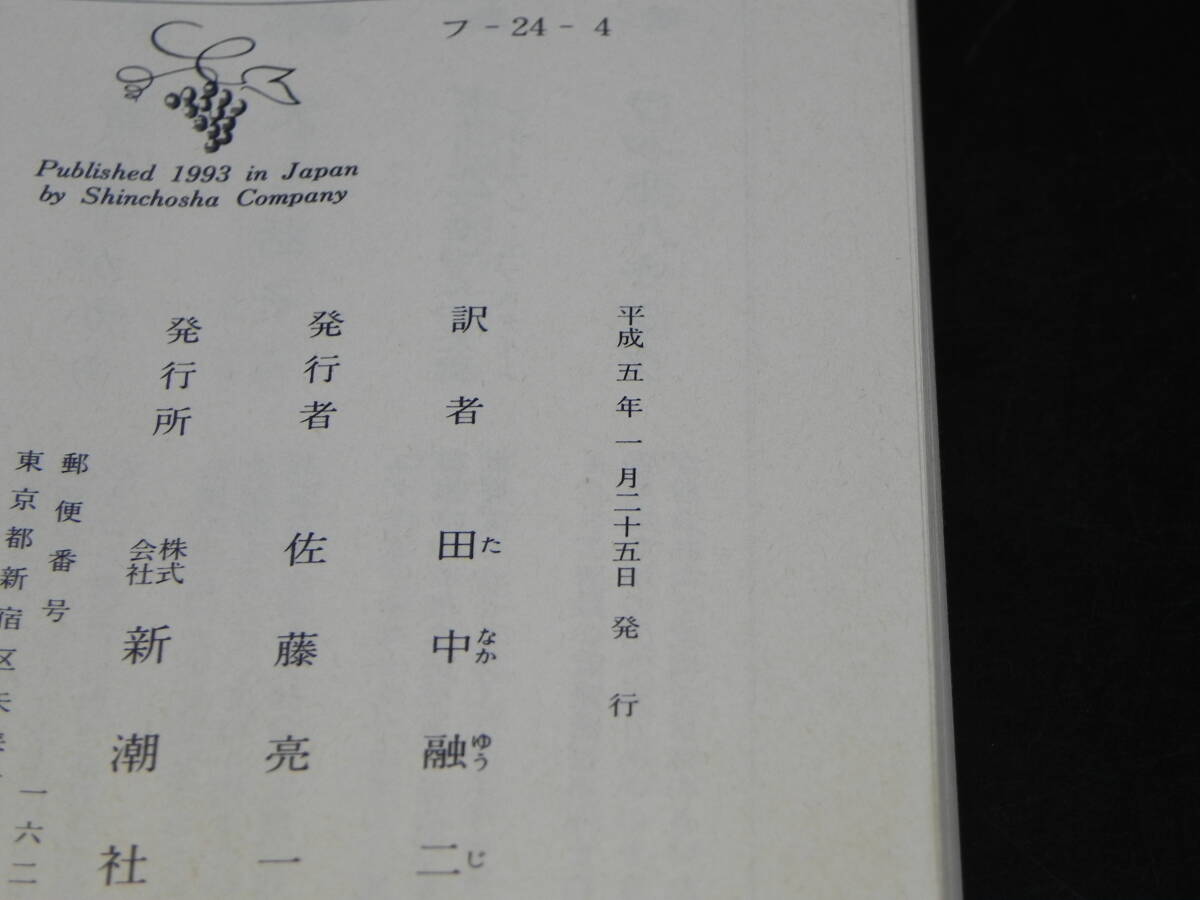 フ-24-4
Published 1993 in Japan
by Shinchosha Company
平成五年一月二十五日発行
訳者 田中融二
た なか ゆう じ
発行者 佐藤亮一
発行所 株式会社 新潮社
郵便番号 一六二
東京都新宿区矢